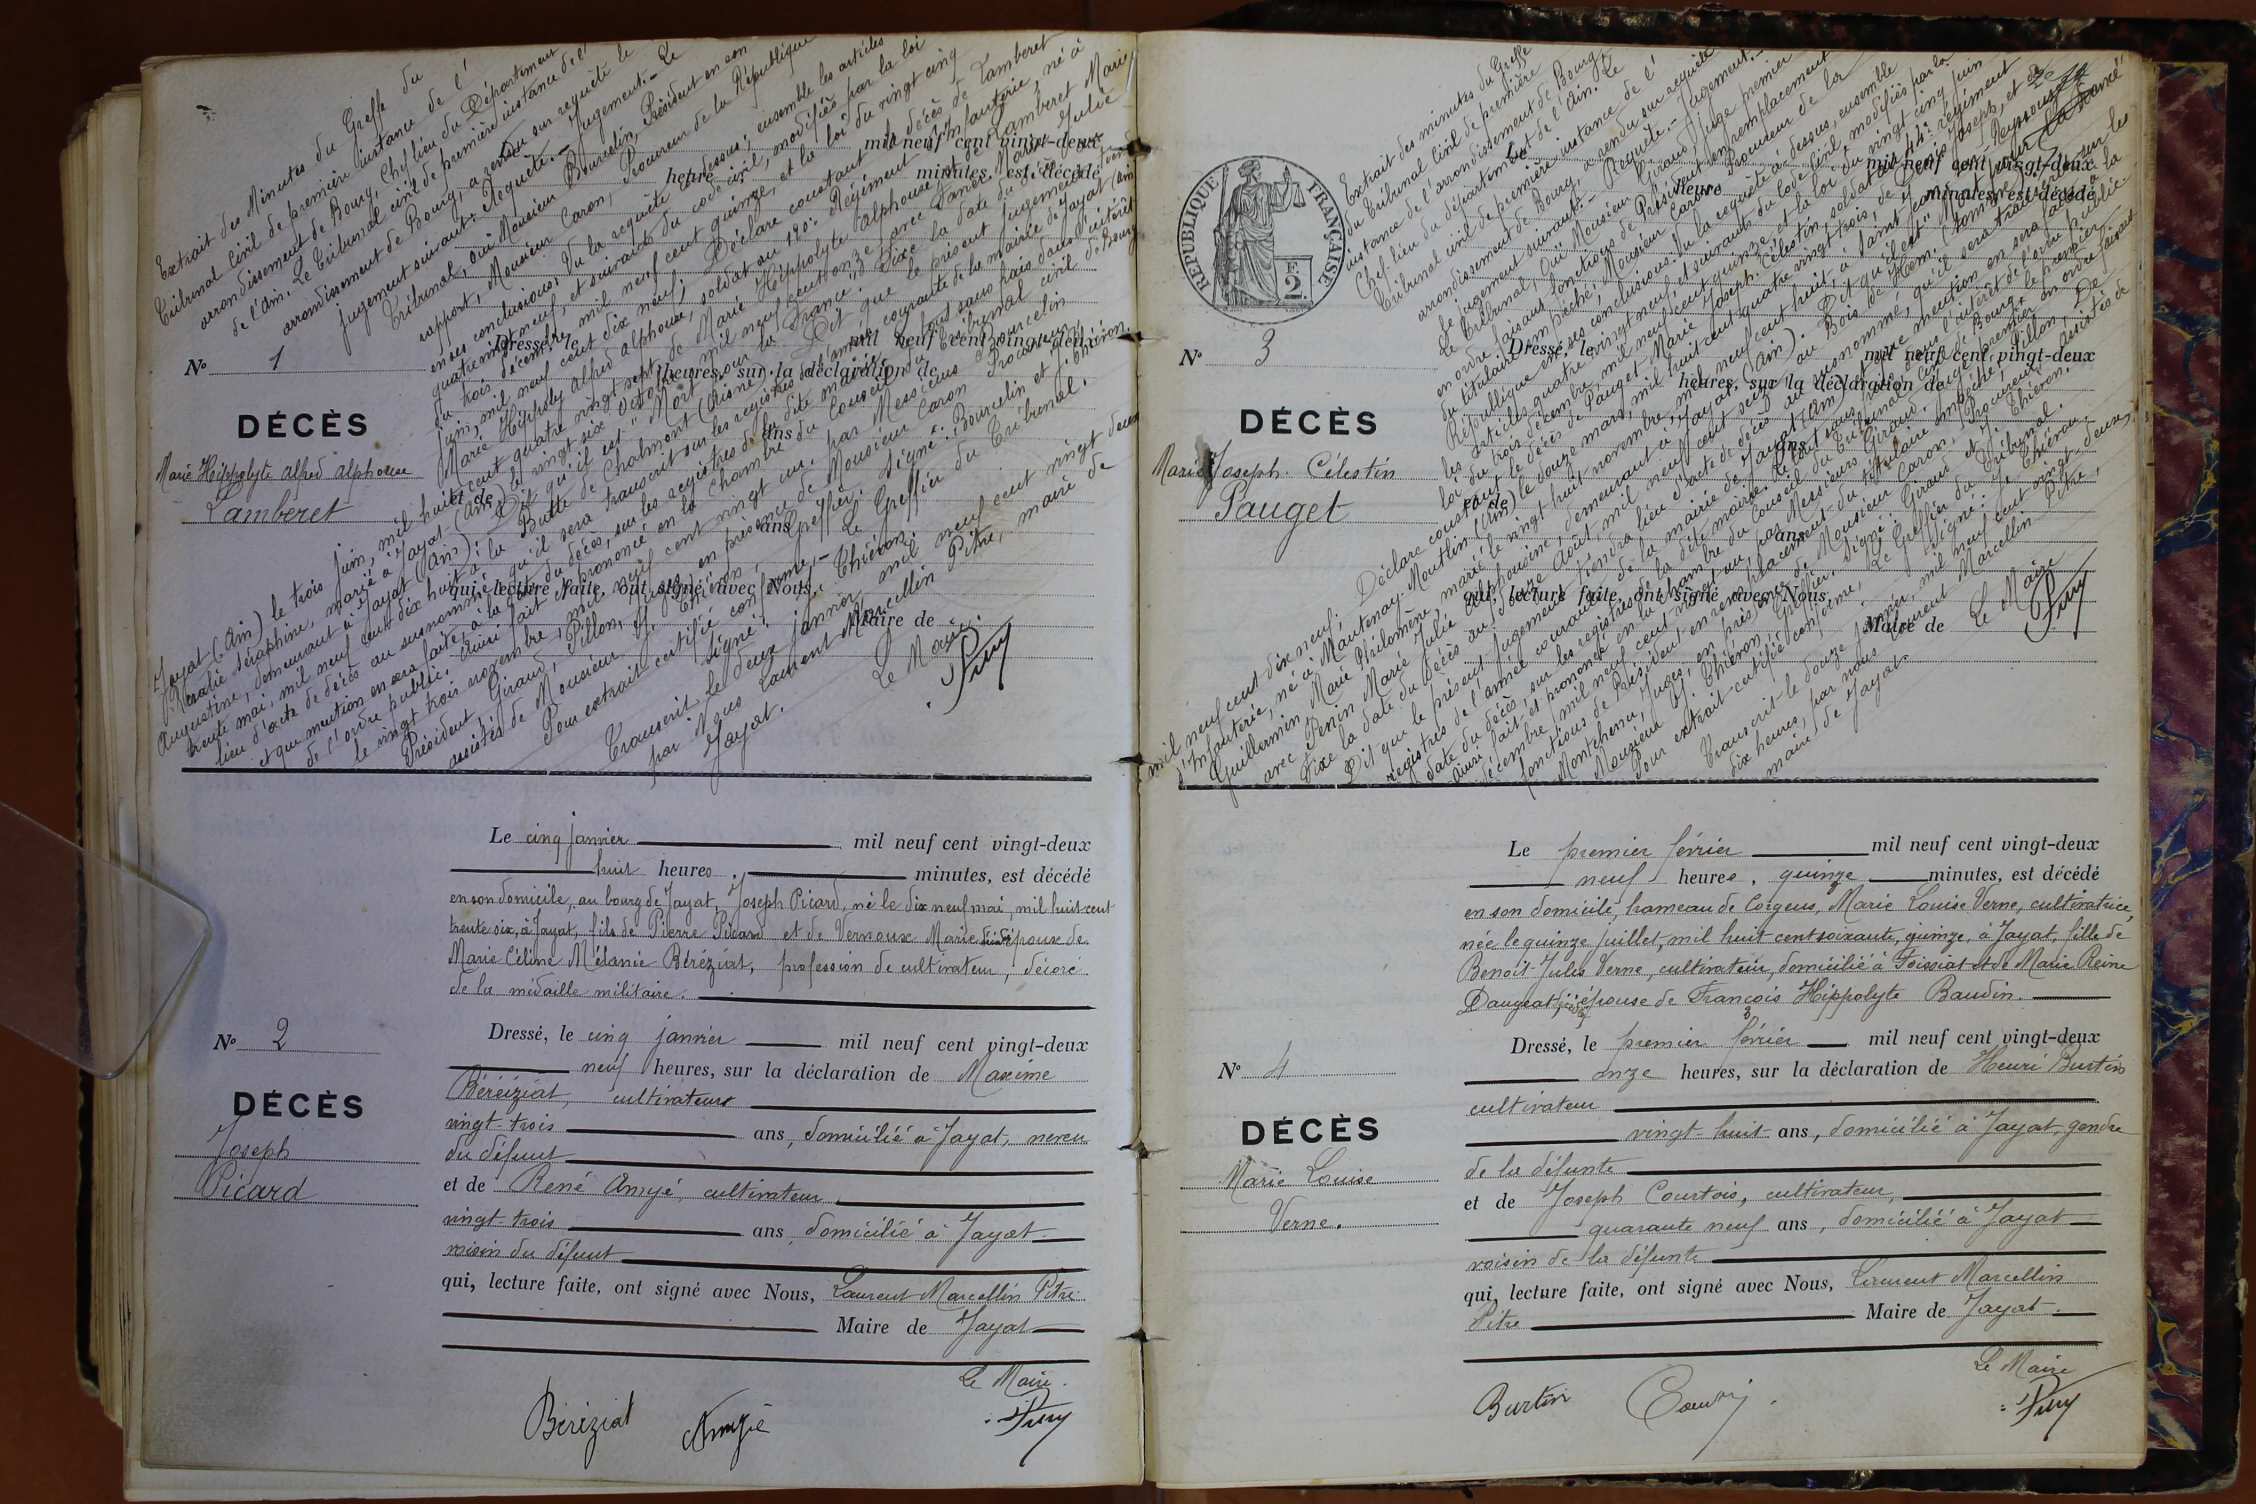 Extrait des Minutes du Greffe du
Tribunal Civil de première instance de l'
arrondissement de Bourg, Chef lieu du Département
de l'Ain. Le Tribunal civil de première instance de l'
arrondissement de Bourg, a rendu sur requête le
jugement suivant. Requête. - Jugement. - Le
Tribunal, ouï Monsieur Bourcelin, Président en son
rapport, Monsieur Caron, Procureur de la République
en ses conclusions; Vu la requête ci-dessus; ensemble les articles
quatre vingt neuf, et suivants du code civil, modifiés par la loi
du trois décembre, mil neuf cent quinze, et la loi du vingt cinq
juin, mil neuf cent dix neuf; Déclare constant le décès de Lamberet
Marie Hippolyte Alfred Alphonse, soldat au 120e Régiment d'Infanterie, né à
Jayat (Ain) le trois juin, mil huit cent quatre vingt sept, de Marie Hippolyte Alphonse et de Lamberet Marie
Rosalie Séraphine, marié à Jayat (Ain) le vingt six octobre mil neuf cent onze avec Janer Marie Julie
Augustine, demeurant à Jayat (Ain); Dit qu'il est "Mort pour la France". Fixe la date du décès au
trente mai, mil neuf cent dix huit à la Butte de Chalmont (Aisne). Dit que le présent jugement tiendra
lieu d'acte de décès au susnommé qu'il sera transcrit sur les registres de l'année courante de la mairie de Jayat (Ain)
et que mention en sera faite à la date du décès, sur les registres de la dite mairie. Le tout sans frais dans l'intérêt
de l'ordre public. Ainsi fait et prononcé en la Chambre du Conseil du Tribunal civil de Bourg
le vingt trois novembre, mil neuf cent vingt un, par Messieurs Bourcelin
Président, Giraud, Pillon, juges, en présence de Monsieur Caron Procureur
assistés de Monsieur J. Thiéron, Greffier. Signé: Bourcelin et J. Thiéron.
Pour extrait certifié conforme, - Le Greffier du Tribunal.
Signé: Thiéron.
Transcrit le deux janvier mil neuf cent vingt deux
par Nous Laurent Marcellin Pitre, maire de
Jayat.
Le Maire
Pitre
mil neuf cent vingt-deux
heure
minutes, est décédé
No 1
DÉCÈS
Marie Hippolyte Alfred Alphonse
Lamberet
Dressé, le mil neuf cent vingt-deux
heures, sur la déclaration de
ans
et de
ans
qui, lecture faite, ont signé avec Nous,
Maire de
No 2
DÉCÈS
Joseph
Picard
Le cinq janvier mil neuf cent vingt-deux
huit heures minutes, est décédé
en son domicile, au bourg de Jayat, Joseph Picard, né le dix neuf mai, mil huit cent
trente six, à Jayat, fils de Pierre Picard et de Vernoux Marie époux de
Marie Céline Mélanie Béréziat, profession de cultivateur, décoré
de la médaille militaire.
Dressé, le cinq janvier mil neuf cent vingt-deux
neuf heures, sur la déclaration de Maxime
Béréziat, cultivateur
vingt-trois ans, domicilié à Jayat, neveu
du défunt
et de René Amyé, cultivateur
vingt-trois ans, domicilié à Jayat
voisin du défunt
qui, lecture faite, ont signé avec Nous, Laurent Marcellin Pitre
Maire de Jayat
Le Maire.
Béréziat Amyié Pitre
REPUBLIQUE FRANÇAISE
2
Extrait des minutes du Greffe
du Tribunal Civil de première
instance de l'arrondissement de Bourg
Chef-lieu du département de l'Ain. Le
Tribunal civil de première instance de l'
arrondissement de Bourg, a rendu sur requête
le jugement suivant. - Requête. - Jugement. -
Le Tribunal, Ouï Monsieur Giraud, Juge premier
en ordre faisant fonctions de Président en remplacement
du titulaire empêché, Monsieur Caron Procureur de la
République en ses conclusions. Vu la requête ci-dessus, ensemble
les articles quatre vingt neuf, et suivants du Code Civil modifiés par la
loi du trois décembre, mil neuf cent quinze, et la loi du vingt cinq juin
mil neuf cent dix neuf; Déclare constant le décès de Pauget Marie Joseph Célestin, soldat au 44e régiment
d'Infanterie, né à Mantenay-Montlin (Ain) le douze mars, mil huit cent quatre vingt trois, de Joseph, et de
Guillermin Marie Philomène, marié le vingt huit novembre, mil neuf cent huit, à Saint Jean sur Reyssouze
avec Perrin Marie Julie Alphonsine, demeurant à Jayat (Ain). Dit qu'il est "Mort pour la France"
Fixe la date du décès au seize Août, mil neuf cent seize au Bois de Hem. (Somme)
Dit que le présent jugement tiendra lieu d'acte de décès au susnommé, qu'il sera transcrit sur les
registres de l'année courante de la mairie de Jayat (Ain) et que mention en sera faite à la
date du décès, sur les registres de la dite mairie. Le tout sans frais dans l'intérêt de l'ordre public
Ainsi fait et prononcé en la Chambre du Conseil du Tribunal Civil de Bourg, le premier
décembre, mil neuf cent vingt un par Messieurs Giraud, Juge premier en ordre faisant
fonctions de Président en remplacement du titulaire empêché, Pillon, De
Montchenu, Juges, en présence de Monsieur Caron, Procureur, assistés de
Monsieur J. Thiéron, Greffier. Signé: Giraud et J. Thiéron.
Pour extrait certifié conforme, Le Greffier du Tribunal.
Signé: J. Thiéron.
Transcrit le douze janvier, mil neuf cent vingt-deux,
dix heures, par nous Laurent Marcellin Pitre,
maire de Jayat.
Le Maire
Pitre
mil neuf cent vingt-deux
heure minutes, est décédé
No 3
DÉCÈS
Marie Joseph Célestin
Pauget
Dressé, le mil neuf cent vingt-deux
heures, sur la déclaration de
ans
et de
ans
qui, lecture faite, ont signé avec Nous,
Maire de
No 4
DÉCÈS
Marie Louise
Verne.
Le premier février mil neuf cent vingt-deux
neuf heures, quinze minutes, est décédé
en son domicile, hameau de Corgeus, Marie Louise Verne, cultivatrice,
née le quinze juillet, mil huit cent soixante, quinze, à Jayat, fille de
Benoît-Jules Verne, cultivateur, domicilié à Foissiat et de Marie Reine
Daugeat, épouse de François Hippolyte Baudin.
Dressé, le premier février mil neuf cent vingt-deux
onze heures, sur la déclaration de Henri Burtin
cultivateur
vingt-huit ans, domicilié à Jayat, gendre
de la défunte
et de Joseph Courtois, cultivateur,
quarante neuf ans, domicilié à Jayat
voisin de la défunte
qui, lecture faite, ont signé avec Nous, Laurent Marcellin
Pitre Maire de Jayat.
Le Maire
Burtin Pitre